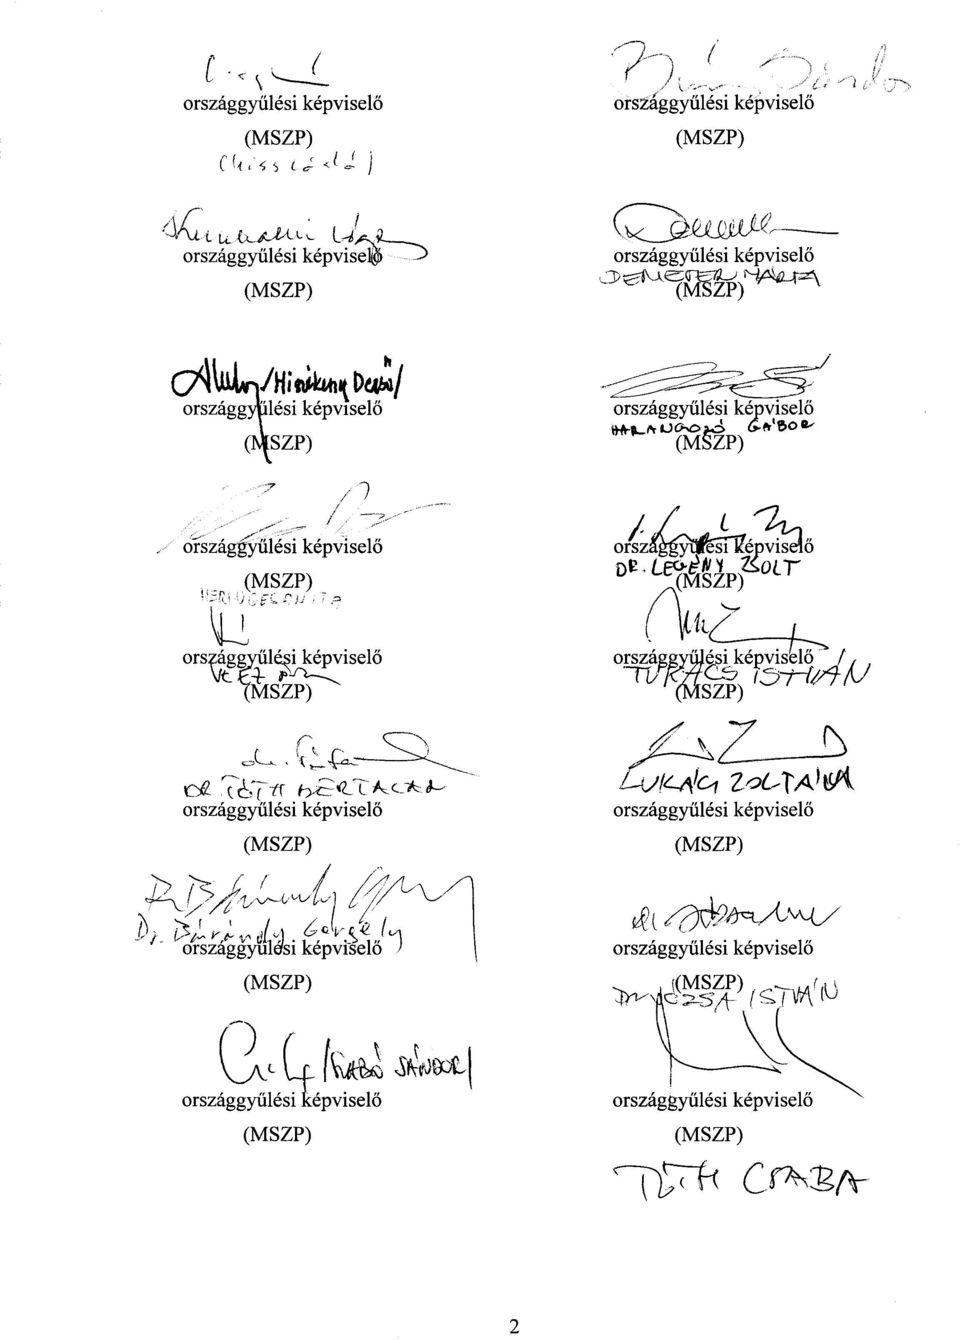 országgyűlési képviselő
(MSZP)
(Kiss László)
Burány Sándor
országgyűlési képviselő
(MSZP)
országgyűlési képviselő
(MSZP)
országgyűlési képviselő
DEMETER MÁRTA
(MSZP)
/Hiszékeny Dezső/
országgyűlési képviselő
(MSZP)
országgyűlési képviselő
HARANGOZÓ GÁBOR
(MSZP)
országgyűlési képviselő
(MSZP)
országgyűlési képviselő
DR. LEGÉNY ZSOLT
(MSZP)
országgyűlési képviselő
(MSZP)
országgyűlési képviselő
TUKACS ISTVÁN
(MSZP)
DR. TÓTH BERTALAN
országgyűlési képviselő
(MSZP)
LUKÁCS ZOLTÁN
országgyűlési képviselő
(MSZP)
Dr. Bárándy Gergely
országgyűlési képviselő
(MSZP)
országgyűlési képviselő
(MSZP)
Dr JÓZSA ISTVÁN
/SZABÓ SÁNDOR/
országgyűlési képviselő
(MSZP)
országgyűlési képviselő
(MSZP)
TÓTH CSABA
2